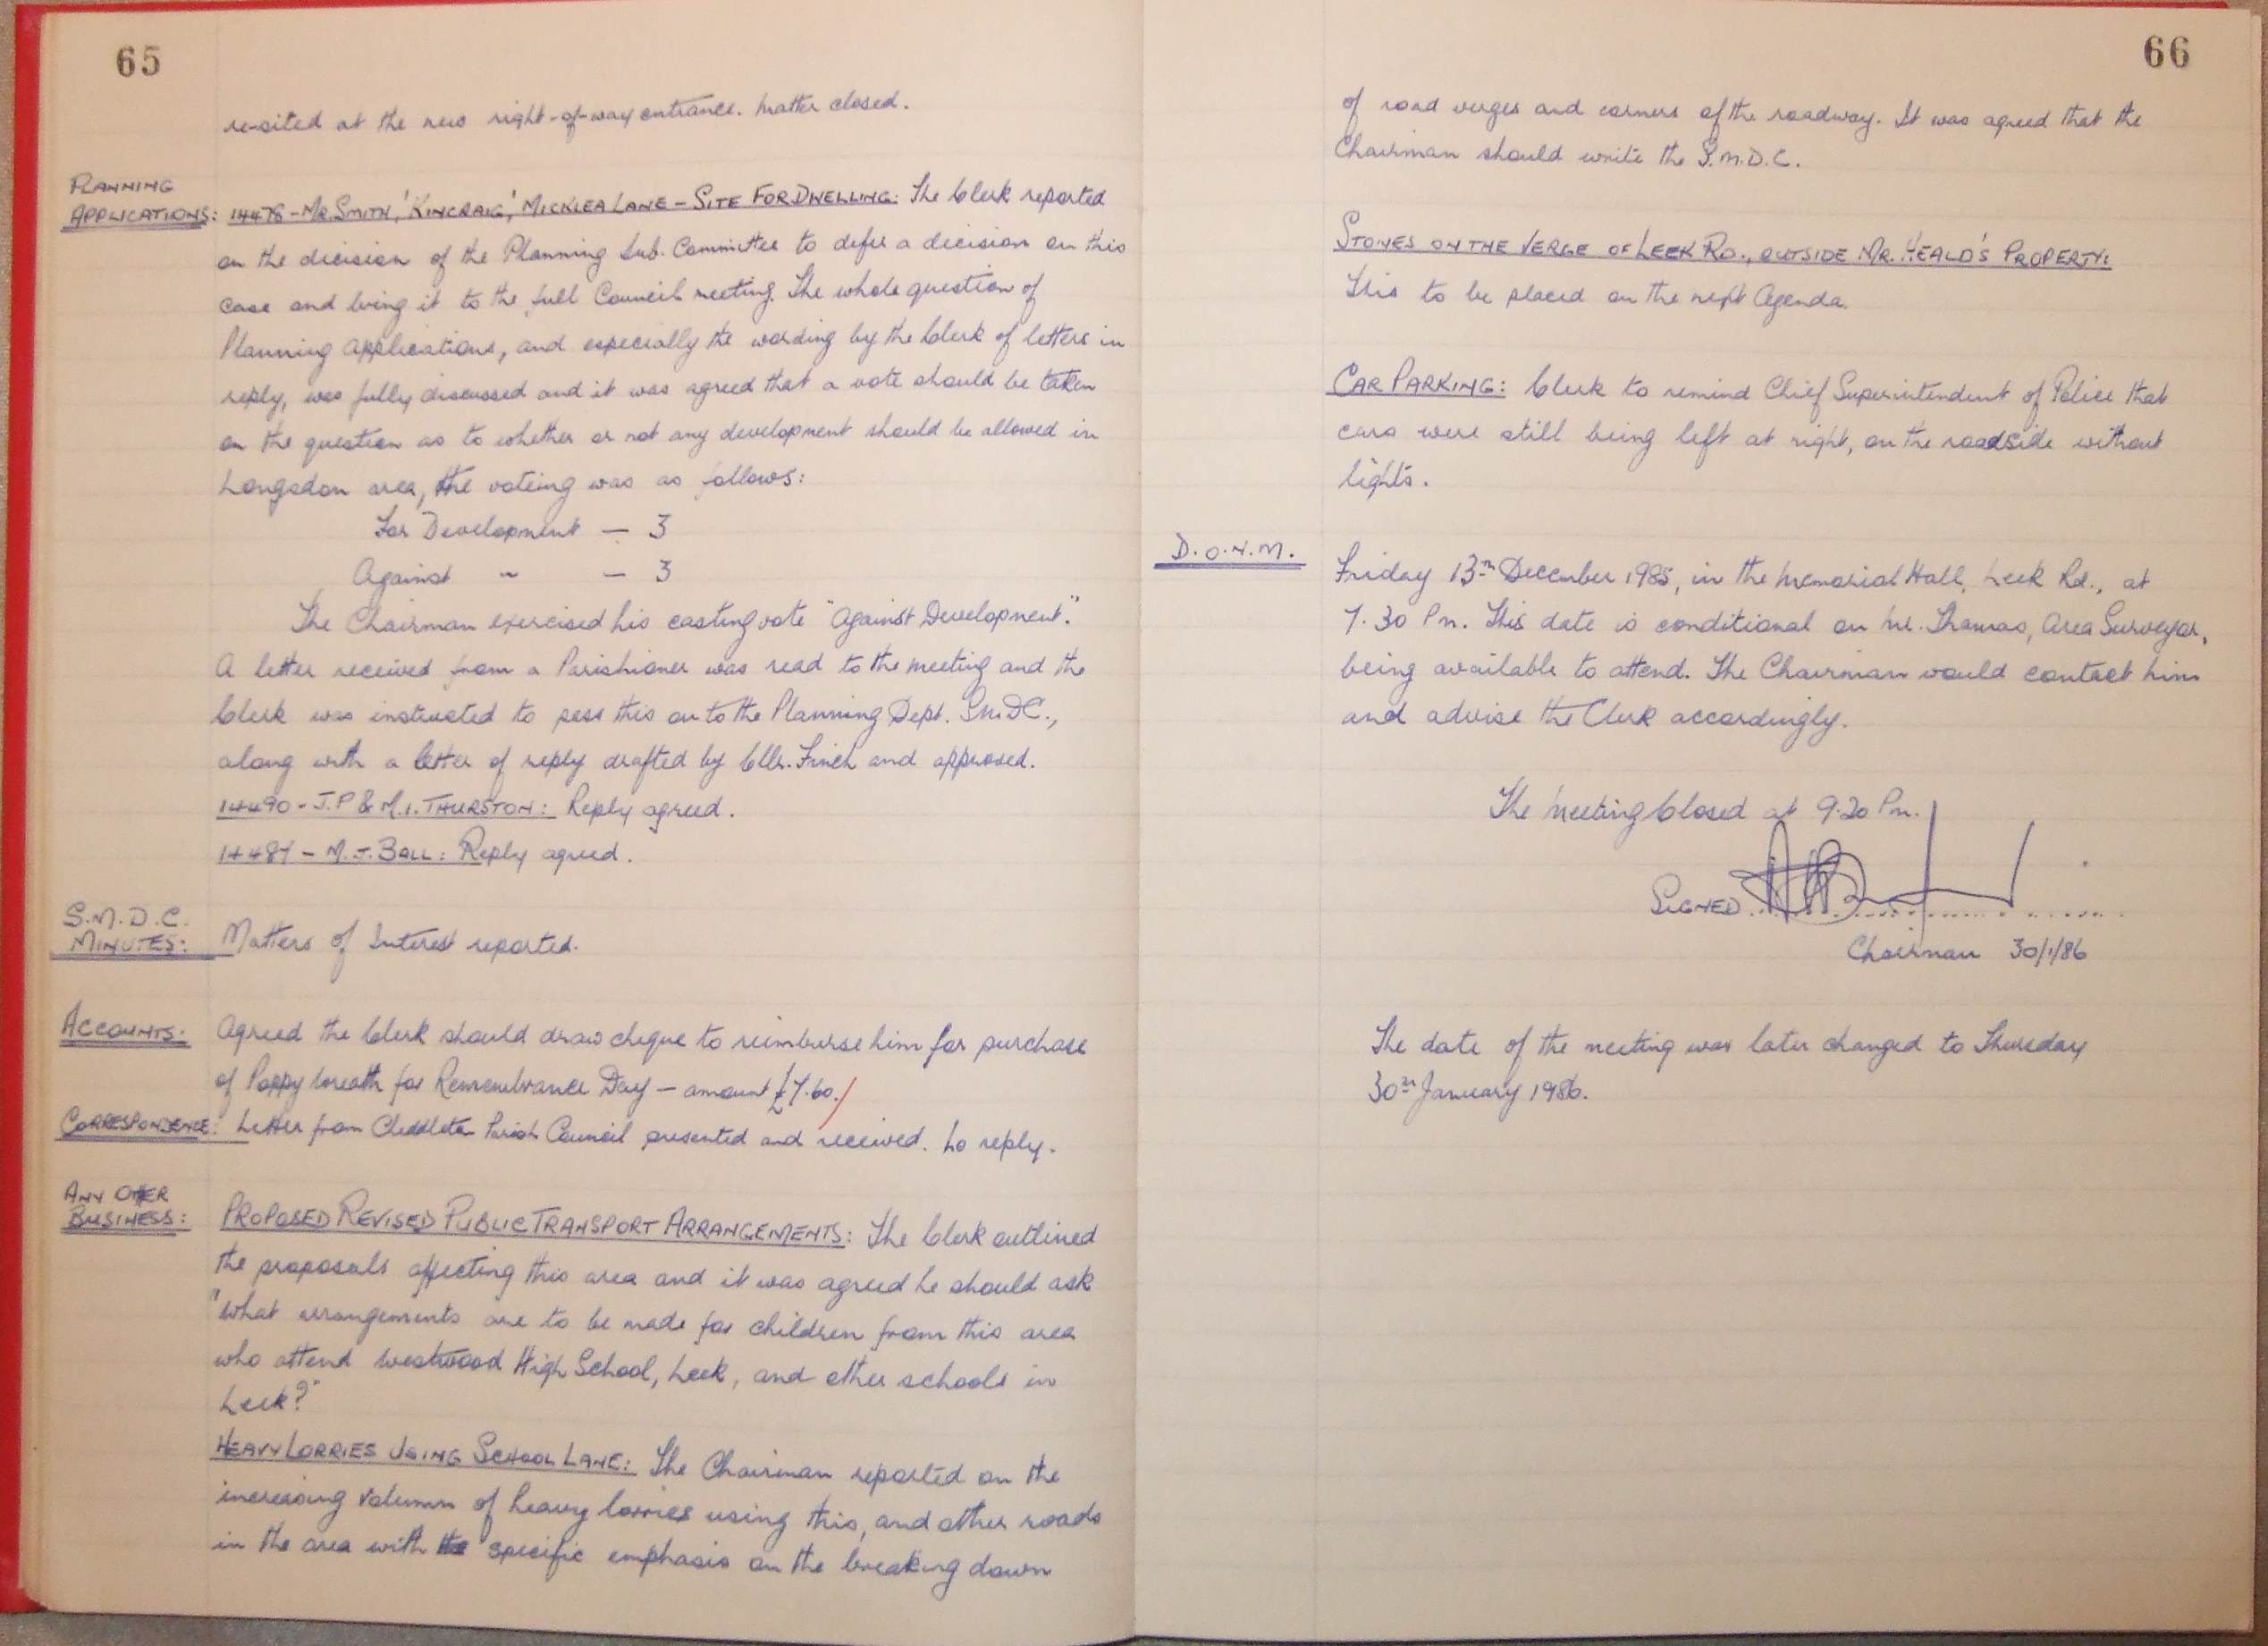 65
re-sited at the new right-of-way entrance. Matter closed.
PLANNING
APPLICATIONS: 14476 - MR. SMITH, 'KINCRAIG', MICKLEA LANE - SITE FOR DWELLING: The Clerk reported
on the dicision of the Planning Sub. Committee to defer a decision on this
case and bring it to the full Council meeting. The whole question of
Planning applications, and especially the wording by the Clerk of letters in
reply, was fully discussed and it was agreed that a vote should be taken
on the question as to whether or not any development should be allowed in
Longsdon area, the voteing was as follows:
For Development - 3
Against " - 3
The Chairman exercised his casting vote "Against Development".
A letter received from a Parishioner was read to the meeting and the
Clerk was instructed to pass this on to the Planning Dept. S.M.D.C.,
along with a letter of reply drafted by Cllr. Finch and approved.
14490 - J.P & M.I. THURSTON: Reply agreed.
14487 - M.J. BALL: Reply agreed.
S.M.D.C.
MINUTES: Matters of Interest reported.
ACCOUNTS: Agreed the Clerk should draw cheque to reimburse him for purchase
of Poppy Wreath for Remembrance Day - amount £7.60.
CORRESPONDENCE: Letter from Cheddleton Parish Council presented and received. No reply.
ANY OTHER
BUSINESS: PROPOSED REVISED PUBLIC TRANSPORT ARRANGEMENTS: The Clerk outlined
the proposals affecting this area and it was agreed he should ask
"What arrangements are to be made for children from this area
who attend Westwood High School, Leek, and other schools in
Leek?"
HEAVY LORRIES USING SCHOOL LANE: The Chairman reported on the
increasing volumn of heavy lorries using this, and other roads
in the area with specific emphasis on the breaking down
66
of road verges and corners of the roadway. It was agreed that the
Chairman should write the S.M.D.C.
STONES ON THE VERGE OF LEEK RD., OUTSIDE MR. HEALD'S PROPERTY:
This to be placed on the next Agenda.
CAR PARKING: Clerk to remind Chief Superintendent of Police that
cars were still being left at night, on the roadside without
lights.
D.O.N.M. Friday 13th December 1985, in the Memorial Hall, Leek Rd., at
7.30 Pm. This date is conditional on Mr. Thomas, Area Surveyor,
being available to attend. The Chairman would contact him
and advise the Clerk accordingly.
The Meeting Closed at 9.20 Pm.
SIGNED
Chairman 30/1/86
The date of the meeting was later changed to Thursday
30th January 1986.